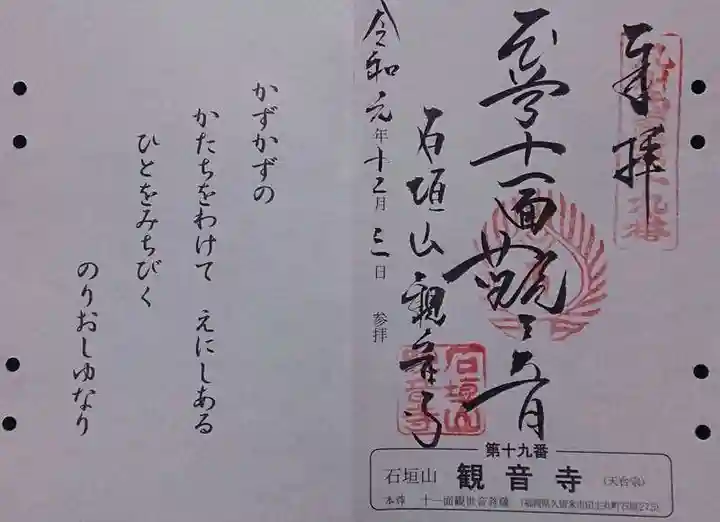 奉拝
十一面
石垣山 観音寺
令和元年十二月三日 参拝
石垣山
観音寺
第十九番
石垣山 観音寺 (天台宗)
本尊 十一面観世音菩薩 (福岡県久留米市田主丸町石垣275)
かずかずの
かたちをわけて えにしある
ひとをみちびく
のりおしゆなり